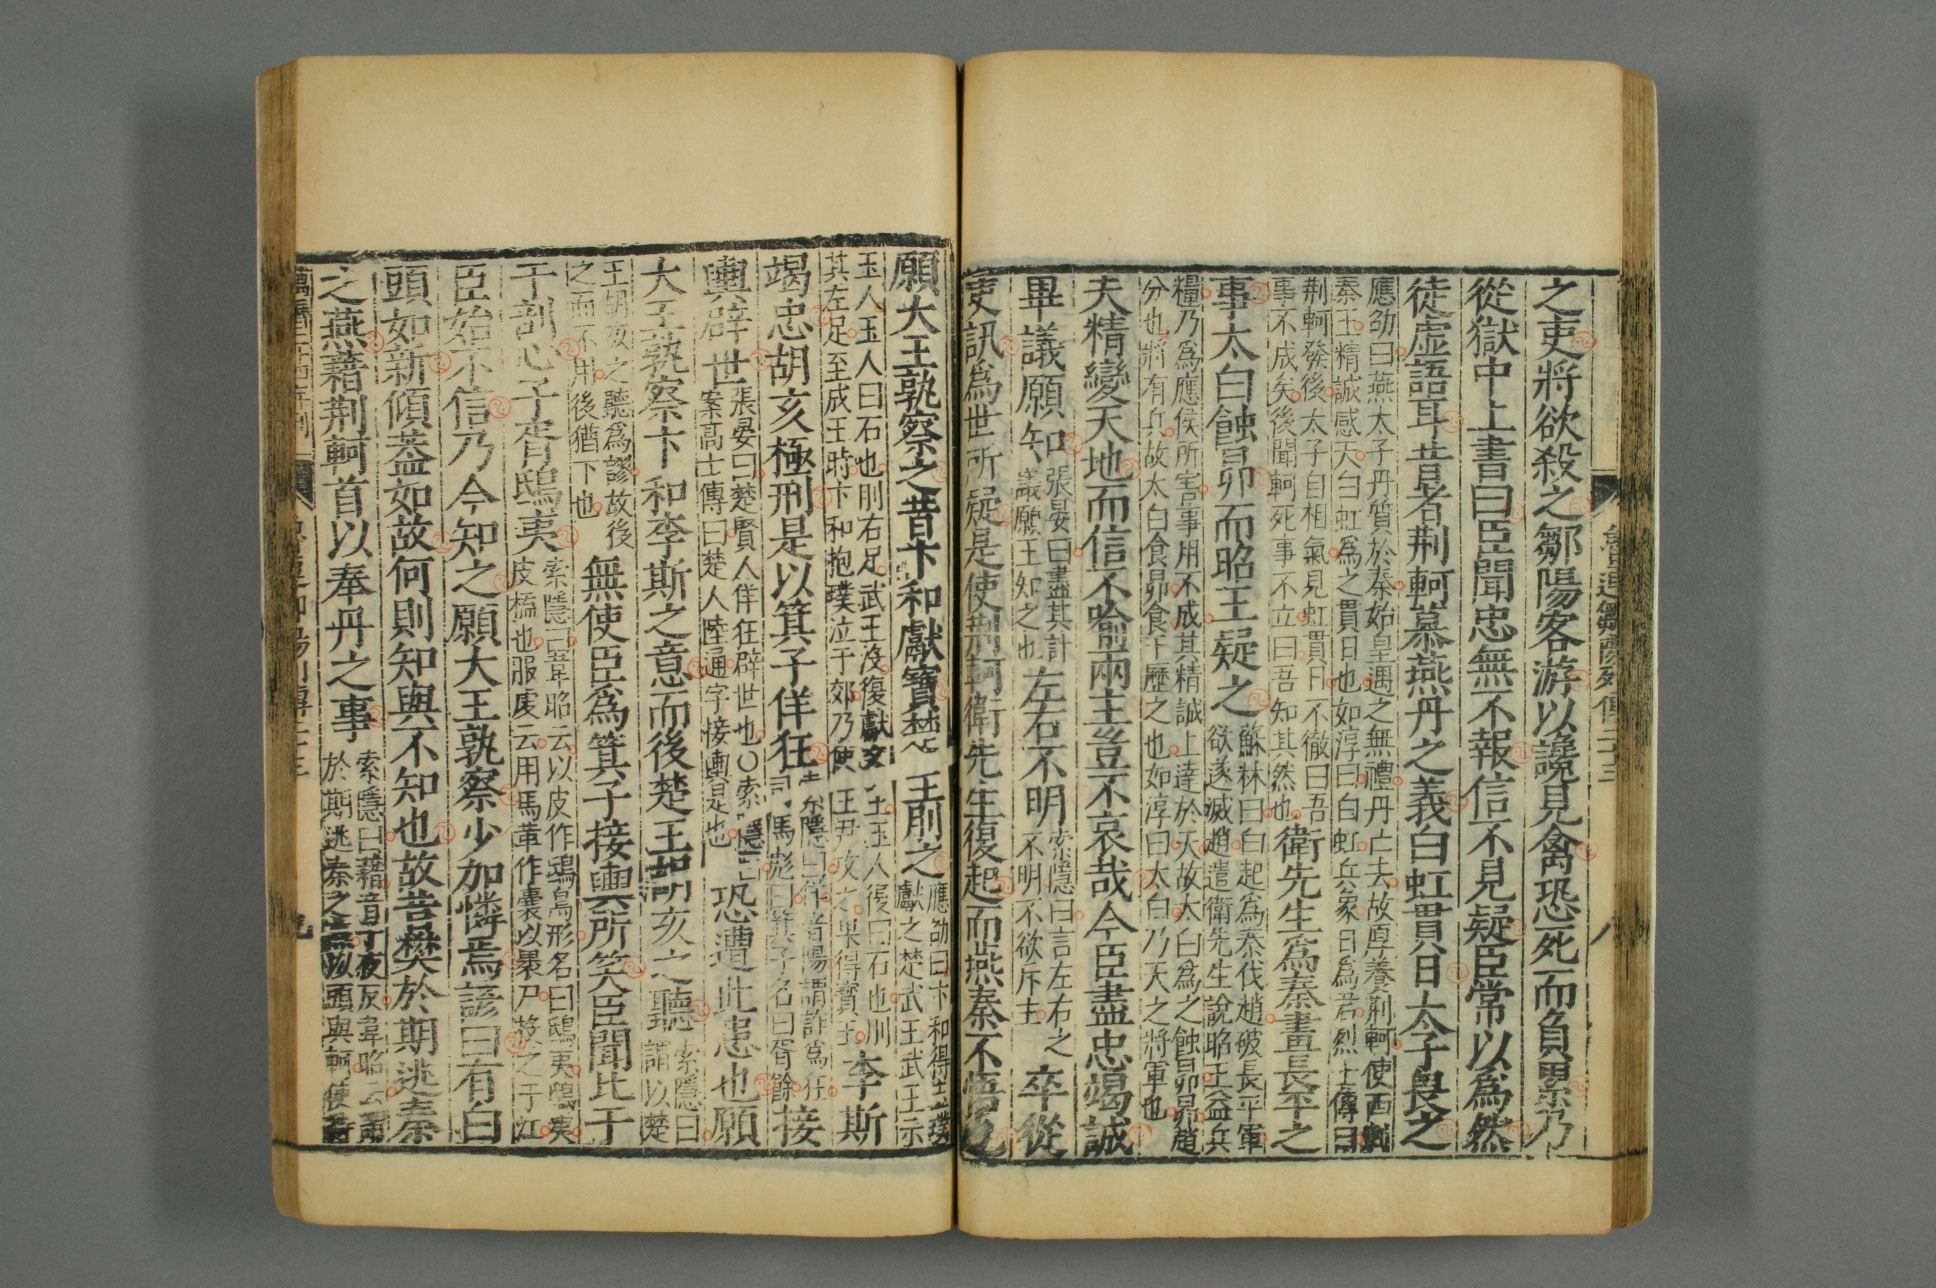 魯連鄒陽列傳二十三
八
之吏將欲殺之鄒陽客游以讒見禽恐死而負累乃
從獄中上書曰臣聞忠無不報信不見疑臣常以爲然
徒虛語耳昔者荆軻慕燕丹之義白虹貫日太子畏之
應劭曰燕太子丹質於秦始皇遇之無禮丹亡去故厚養荆軻使西刺
秦王精誠感天白虹爲之貫日也如淳曰白虹兵象日爲君烈士傳曰
荆軻發後太子自相氣見虹貫日不徹曰吾
事不成矣後聞軻死事不立曰吾知其然也
衛先生爲秦畫長平之
事太白蝕昴而昭王疑之
蘇林曰白起爲秦伐趙破長平軍
欲遂滅趙遣衛先生說昭王益兵
糧乃爲應侯所害事用不成其精誠上達於天故太白爲之蝕昴昴趙
分也將有兵故太白食昴食干歷之也如淳曰太白乃天之將軍也
夫精變天地而信不喻兩主豈不哀哉今臣盡忠竭誠
畢議願知
張晏曰盡其計
議願王知之也
左右不明
索隱曰言左右之
不明不欲斥主
卒從
吏訊爲世所疑是使荆軻衛先生復起而燕秦不悟也
願大王孰察之昔卞和獻寶楚王刖之
應劭曰卞和得玉璞
獻之楚武王武王示
玉人玉人曰石也刖右足武王没復獻文王玉人復曰石也刖
其左足至成王時卞和抱璞泣于郊乃使玉尹攻之果得寶玉
李斯
竭忠胡亥極刑是以箕子佯狂
索隱曰佯音陽謂詐爲狂
司馬彪曰箕子名曰胥餘
接
輿辟世
張晏曰楚賢人佯狂辟世也○索隱曰
案高士傳曰楚人陸通字接輿是也
恐遭此患也願
大王孰察卞和李斯之意而後楚王胡亥之聽
索隱曰
謂以楚
王胡亥之聽爲謬故後
之而不用後猶下也
無使臣爲箕子接輿所笑臣聞比干
干剖心子胥鴟夷
索隱曰韋昭云以皮作鴟鳥形名曰鴟夷鴟夷
皮榼也服虔云用馬革作囊以裹尸投之于江
臣始不信乃今知之願大王孰察少加憐焉諺曰有白
頭如新傾蓋如故何則知與不知也故昔樊於期逃秦
之燕藉荆軻首以奉丹之事
索隱曰藉音子夜反韋昭云謂
於期逃秦之燕以頭與軻使
九